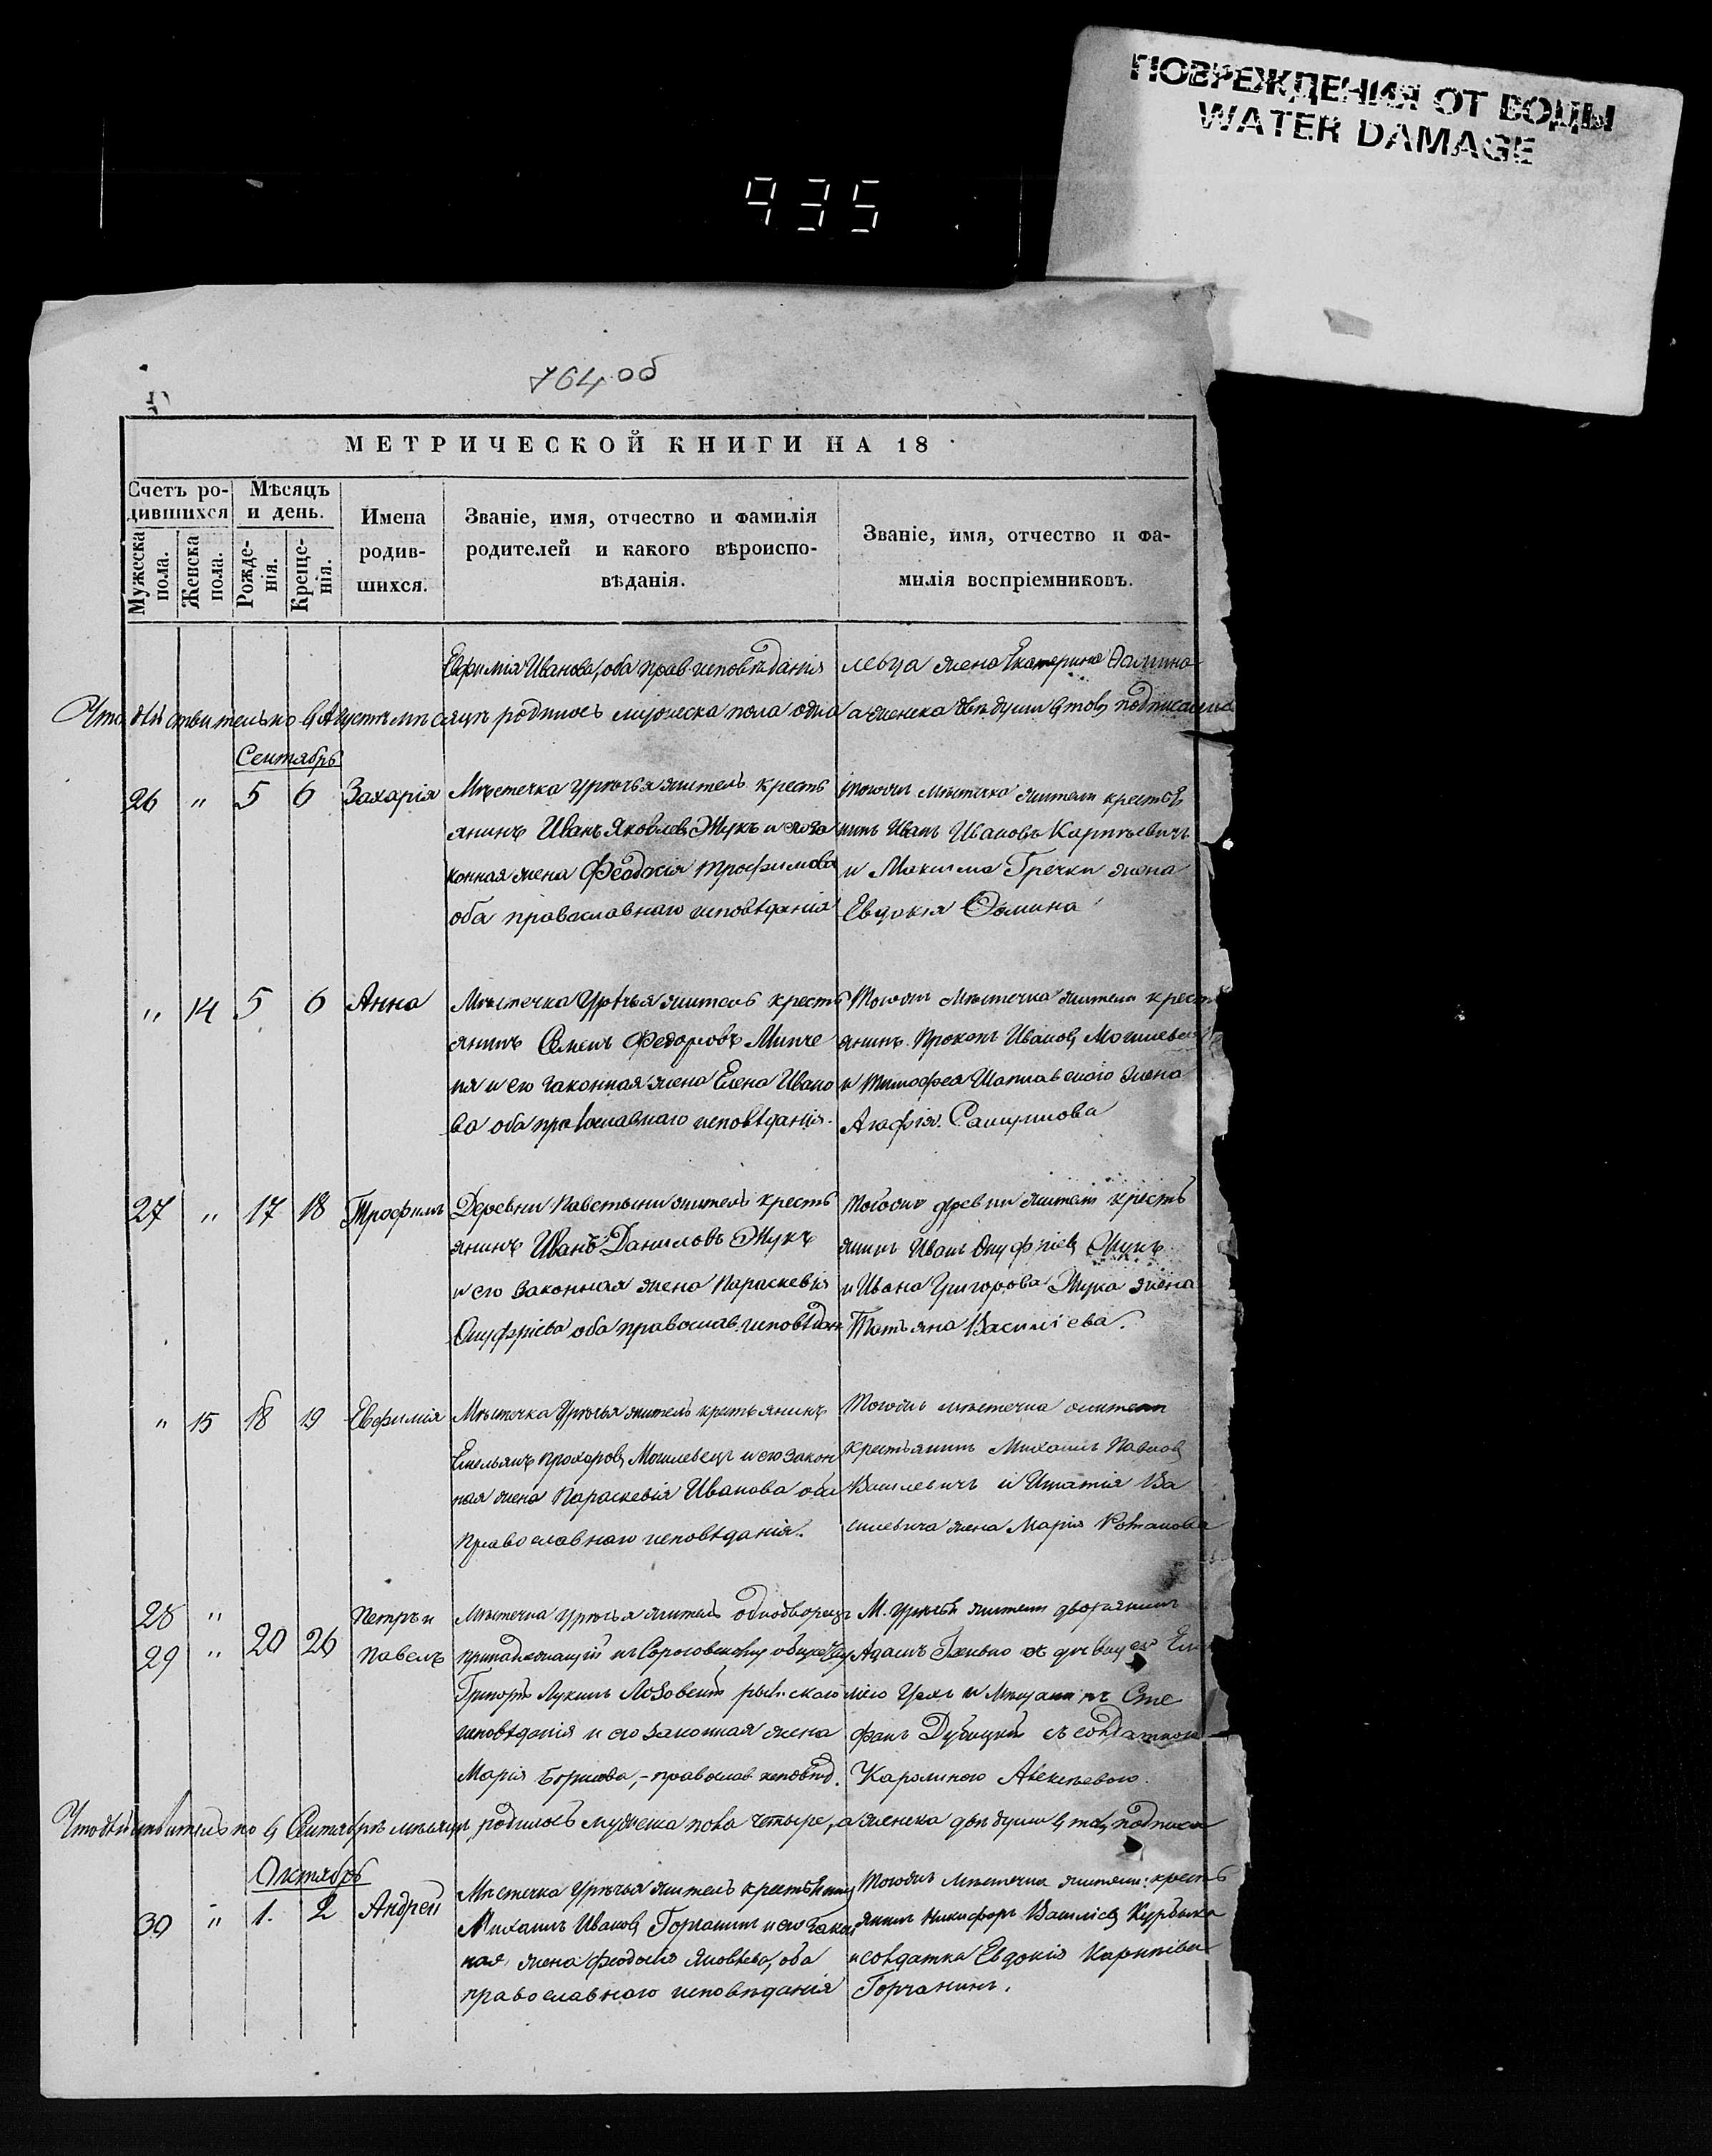 ПОВРЕЖДЕНИЯ ОТ ВОДЫ
WATER DAMAGE
935
764 об
МЕТРИЧЕСКОЙ КНИГИ НА 18
Счетъ ро-
дившихся
Мужеска пола.
Женска пола.
Мѣсяцъ
и день.
Рожде-
нія.
Креще-
нія.
Имена
родив-
шихся.
Званіе, имя, отчество и фамилія
родителей и какого вѣроиспо-
вѣданія.
Званіе, имя, отчество и фа-
милія воспріемниковъ.
Евфимія Иванова, оба прав. исповѣданія
жена Екатерина
Что дѣйствительно въ Августѣ мѣсяцѣ родилось мужеска пола одна а женска двѣ души въ томъ
Сентябрь
26 " 5 6 Захарія
Мѣстечка Уречья житель кресть
янинъ Иванъ Яковлевъ Жукъ и его за
конная жена Феодосія Трофимова
оба православнаго исповѣданія
тогожъ мѣстечка жители крестья
нинъ Иванъ Ивановъ
и Максима Гречки жена
Евдокія
" 14 5 6 Анна
Мѣстечка Уречья житель кресть
янинъ Семенъ Федоровъ
и его законная жена Елена Ивано
ва оба православнаго исповѣданія.
Тогожъ мѣстечка жители кресть
янинъ Прокопъ Ивановъ
и Тимофея жена
Агафія
27 " 17 18 Трофимъ
Деревни житель кресть
янинъ Иванъ Даниловъ Жукъ
и его законная жена Параскевія
Онуфріева оба православ. исповѣдан
тогожъ деревни жители кресть
янинъ Иванъ Онуфріевъ Жукъ
и Ивана Григорова Жука жена
Татьяна Василіева.
" 15 18 19 Евфимія
Мѣстечка Уречья житель крестьянинъ
Емельянъ Прохоровъ Могилевецъ и его закон
ная жена Параскевія Иванова оба
Православнаго исповѣданія.
Тогожъ мѣстечка жители
крестьянинъ Михаилъ Павловъ
Василевичъ и Игнатія Ва
силевича жена Марія Романова
28 "
29 " 20 26 Петръ и
Павелъ
Мѣстечка Уречья житель однодворецъ
принадлежащій къ
Григорій Лукинъ римскаго
исповѣданія и его законная жена
Марія Борисова, - православ. исповѣд.
М. Уречья жители дворянинъ
Адамъ
и Мѣщанинъ Сте
фанъ съ солдаткою
Каролиною
Что дѣйствительно въ Сентябрѣ мѣсяцѣ родилось мужеска пола четыре, а женска двѣ души въ томъ
Октябрь
30 " 1. 2 Андрей
Мѣстечка Уречья житель крестьянинъ
Михаилъ Ивановъ Горчанинъ и его закон
ная жена Феодосія Яковлева, оба
православнаго исповѣданія
Тогожъ мѣстечка жители: кресть
янинъ Никифоръ Василіевъ
и солдатка Евдокія
Горчанинъ.